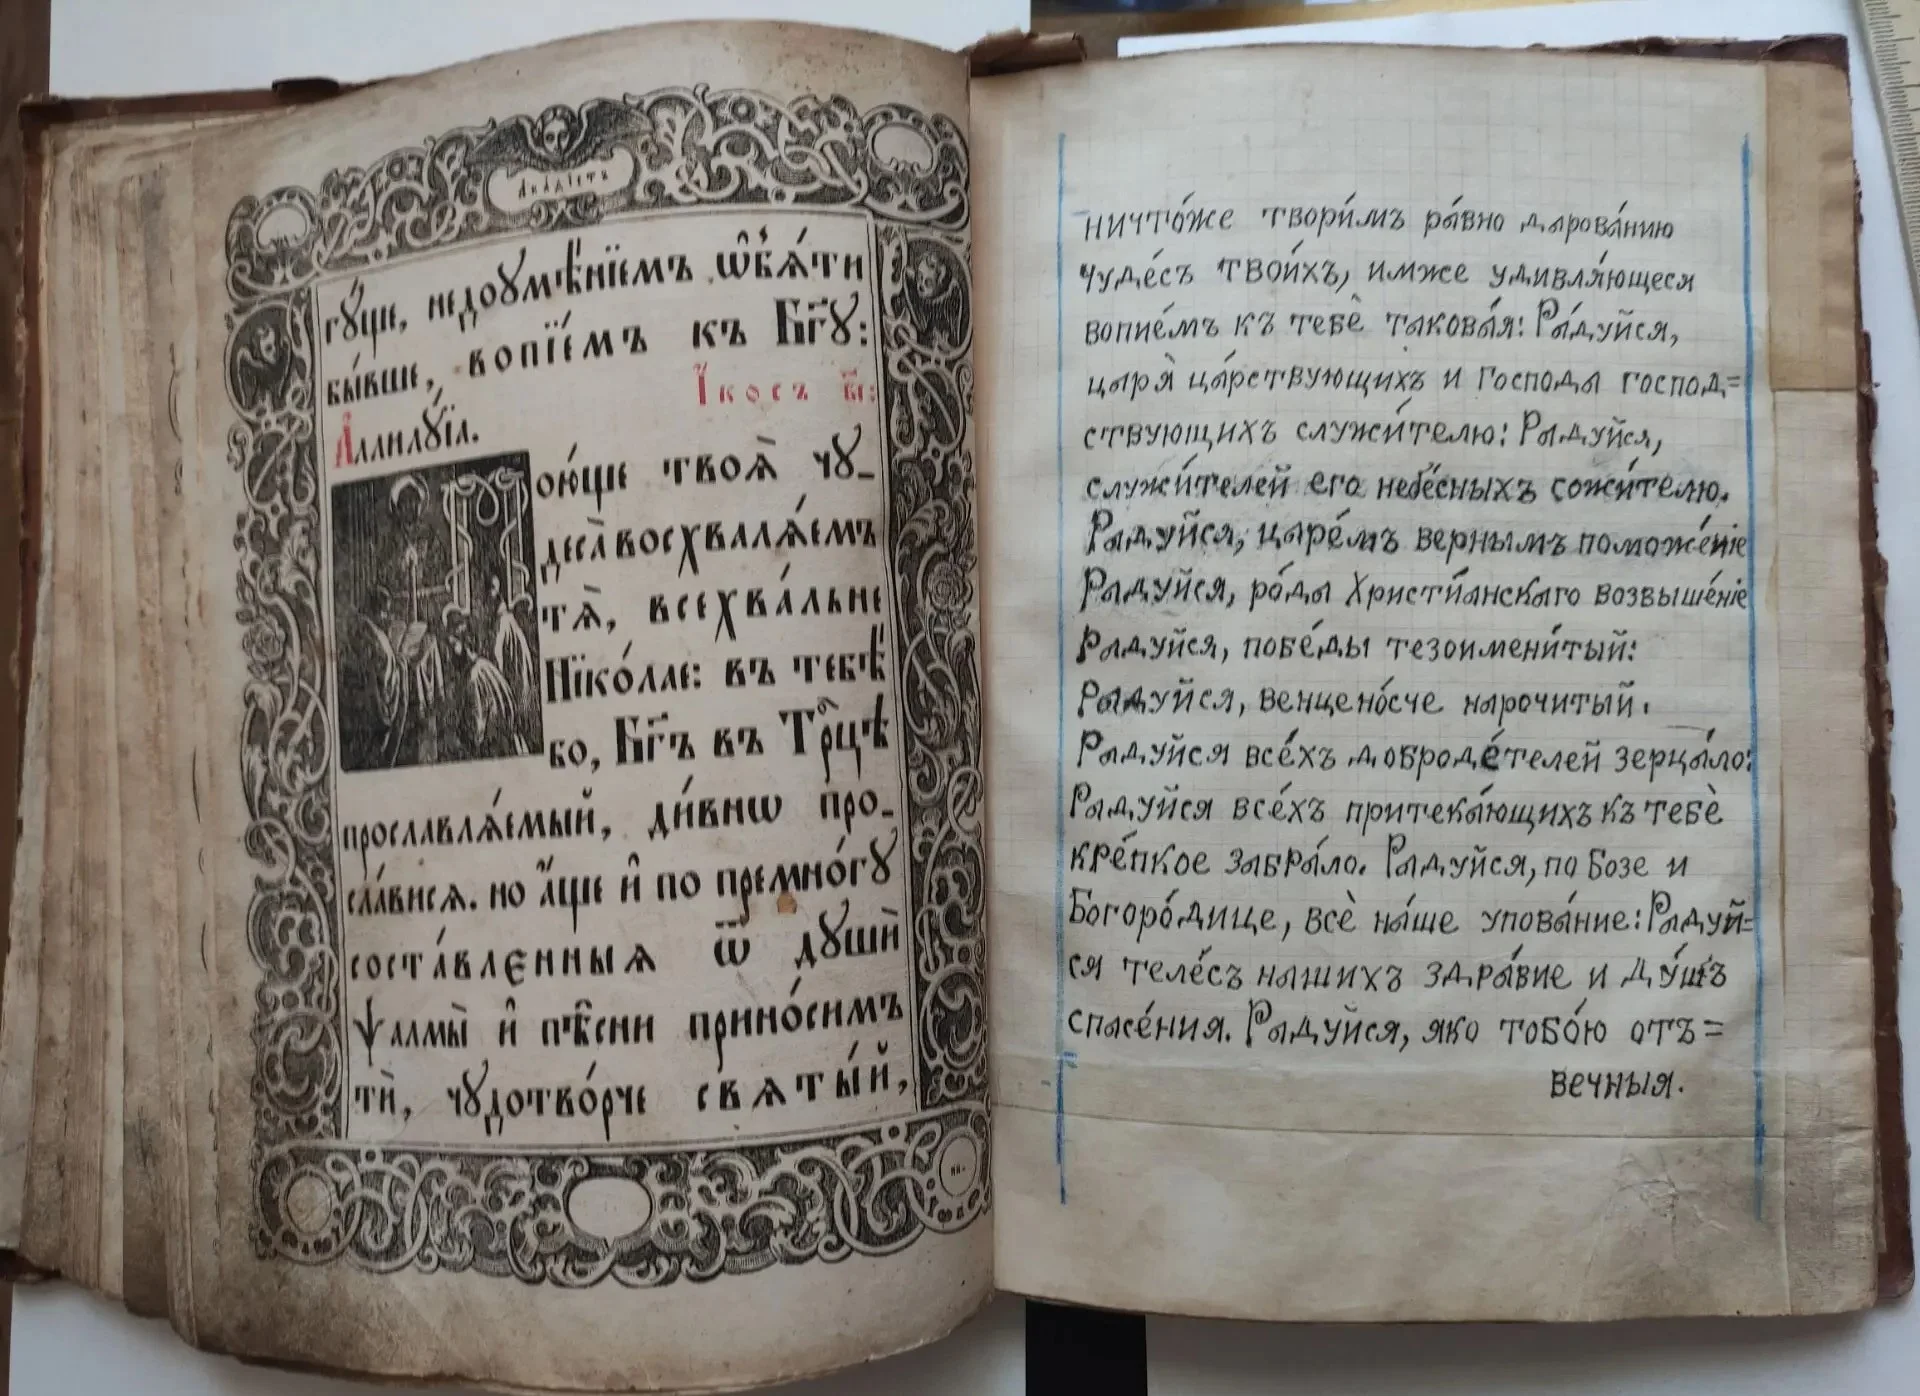 Акаѳістъ
гꙋ́ще, недоꙋмѣ́нїемъ ѡ҆б̾ѧ́ти
бы́вше, вопїе́мъ къ Бг҃ꙋ:
А҆ллилꙋ́їа. І҆́косъ в҃і:
ою́ще твоѧ̑ чꙋ-
деса̀ восхвалѧ́емъ
тѧ̀, всехва́льне
Нїко́лае: въ тебѣ́
бо, Бг҃ъ въ Трⷪ҇цѣ
прославлѧ́емый, ди́внѡ про-
сла́висѧ. но а҆́ще и҆ по премно́гꙋ
соста́вленныѧ ѿ дꙋшѝ
ѱалмы̀ и҆ пѣ́сни прино́симъ
тѝ, чꙋдотво́рче свѧты́й,
ничто́же твори́мъ ра́вно дарова́нию
чуде́съ твои́хъ, имже удивля́ющеся
вопие́мъ къ тебѐ такова́я: Ра́дуйся,
царя̀ ца́рствующихъ и Господа господ=
ствующихъ служи́телю: Радуйся,
служи́телей его небе́сныхъ сожи́телю.
Радуйся, царе́мъ вернымъ поможе́ніе
Радуйся, ро́да Христиа́нскаго возвыше́ніе
Радуйся, побе́ды тезоимени́тый:
Радуйся, венцено́сче нарочитый.
Радуйся все́хъ доброде́телей зерца́ло:
Радуйся все́хъ притека́ющихъ къ тебѐ
кре́пкое забра́ло. Радуйся, по Бозе и
Богоро́дице, всѐ на́ше упова́ние: Радуй=
ся теле́съ нашихъ здра́вие и ду́шъ
спасе́ния. Радуйся, яко тобо́ю отъ=
вечныя.